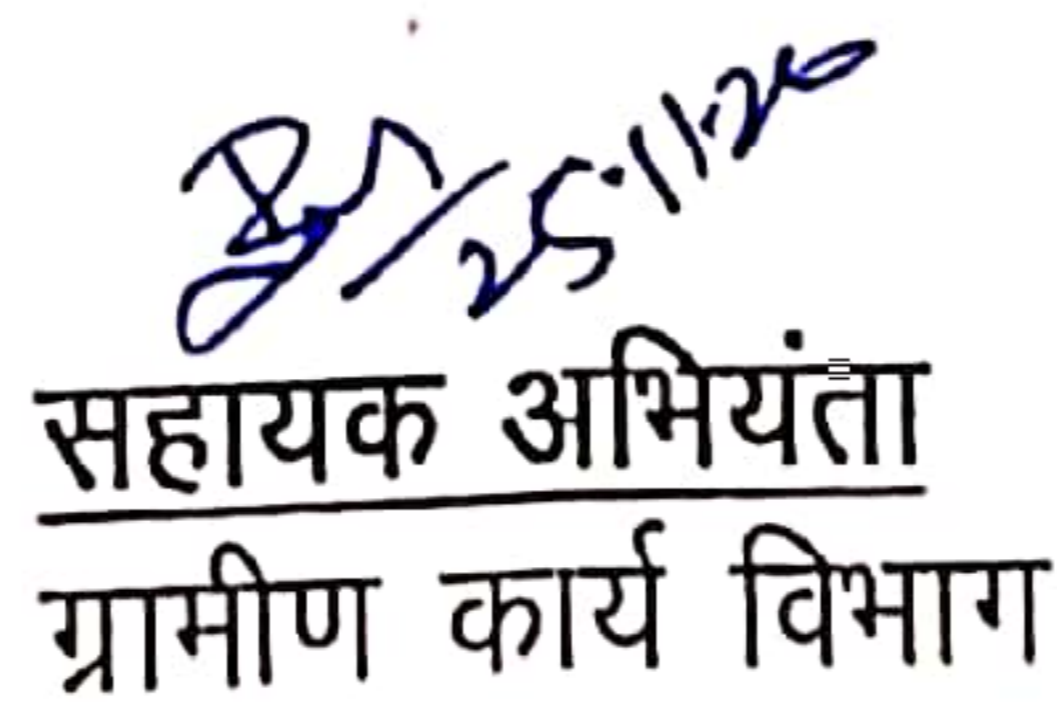 25.11.20
सहायक अभियंता
ग्रामीण कार्य विभाग